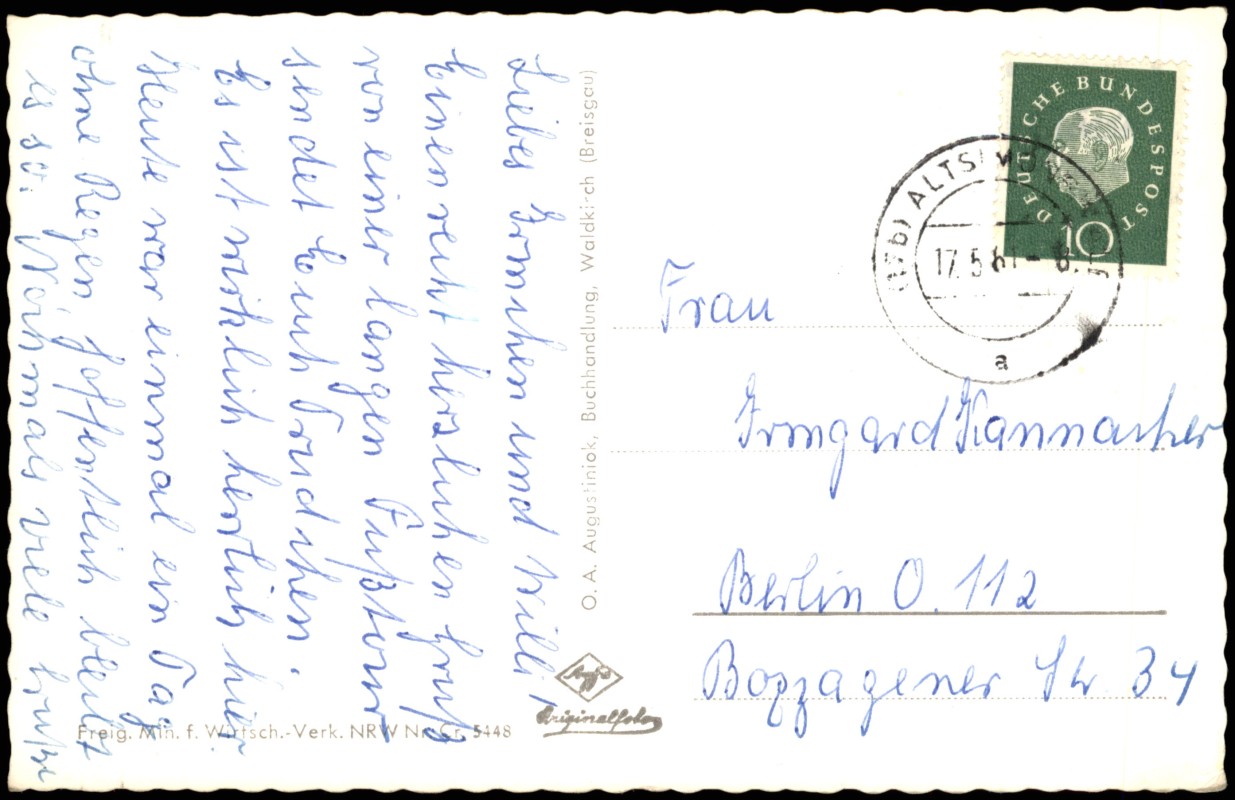 Liebes Irmchen und Willi!
Einen recht herzlichen Gruß
von einer langen Fußtour
sendet Euch Trudchen.
Es ist wirklich herrlich hier
Heute war einmal ein Tag
ohne Regen, hoffentlich bleibt
es so. Nochmals viele Grüße
O. A. Augustiniok, Buchhandlung, Waldkirch (Breisgau)
Freig. Min. f. Wirtsch.-Verk. NRW Nr. Cr. 5448
Agfa
Originalfoto
DEUTSCHE BUNDESPOST
10
ALTSIMONS
17.5.61-8
a
Frau
Irmgard Kannacher
Berlin O. 112
Boxhagener Str 34